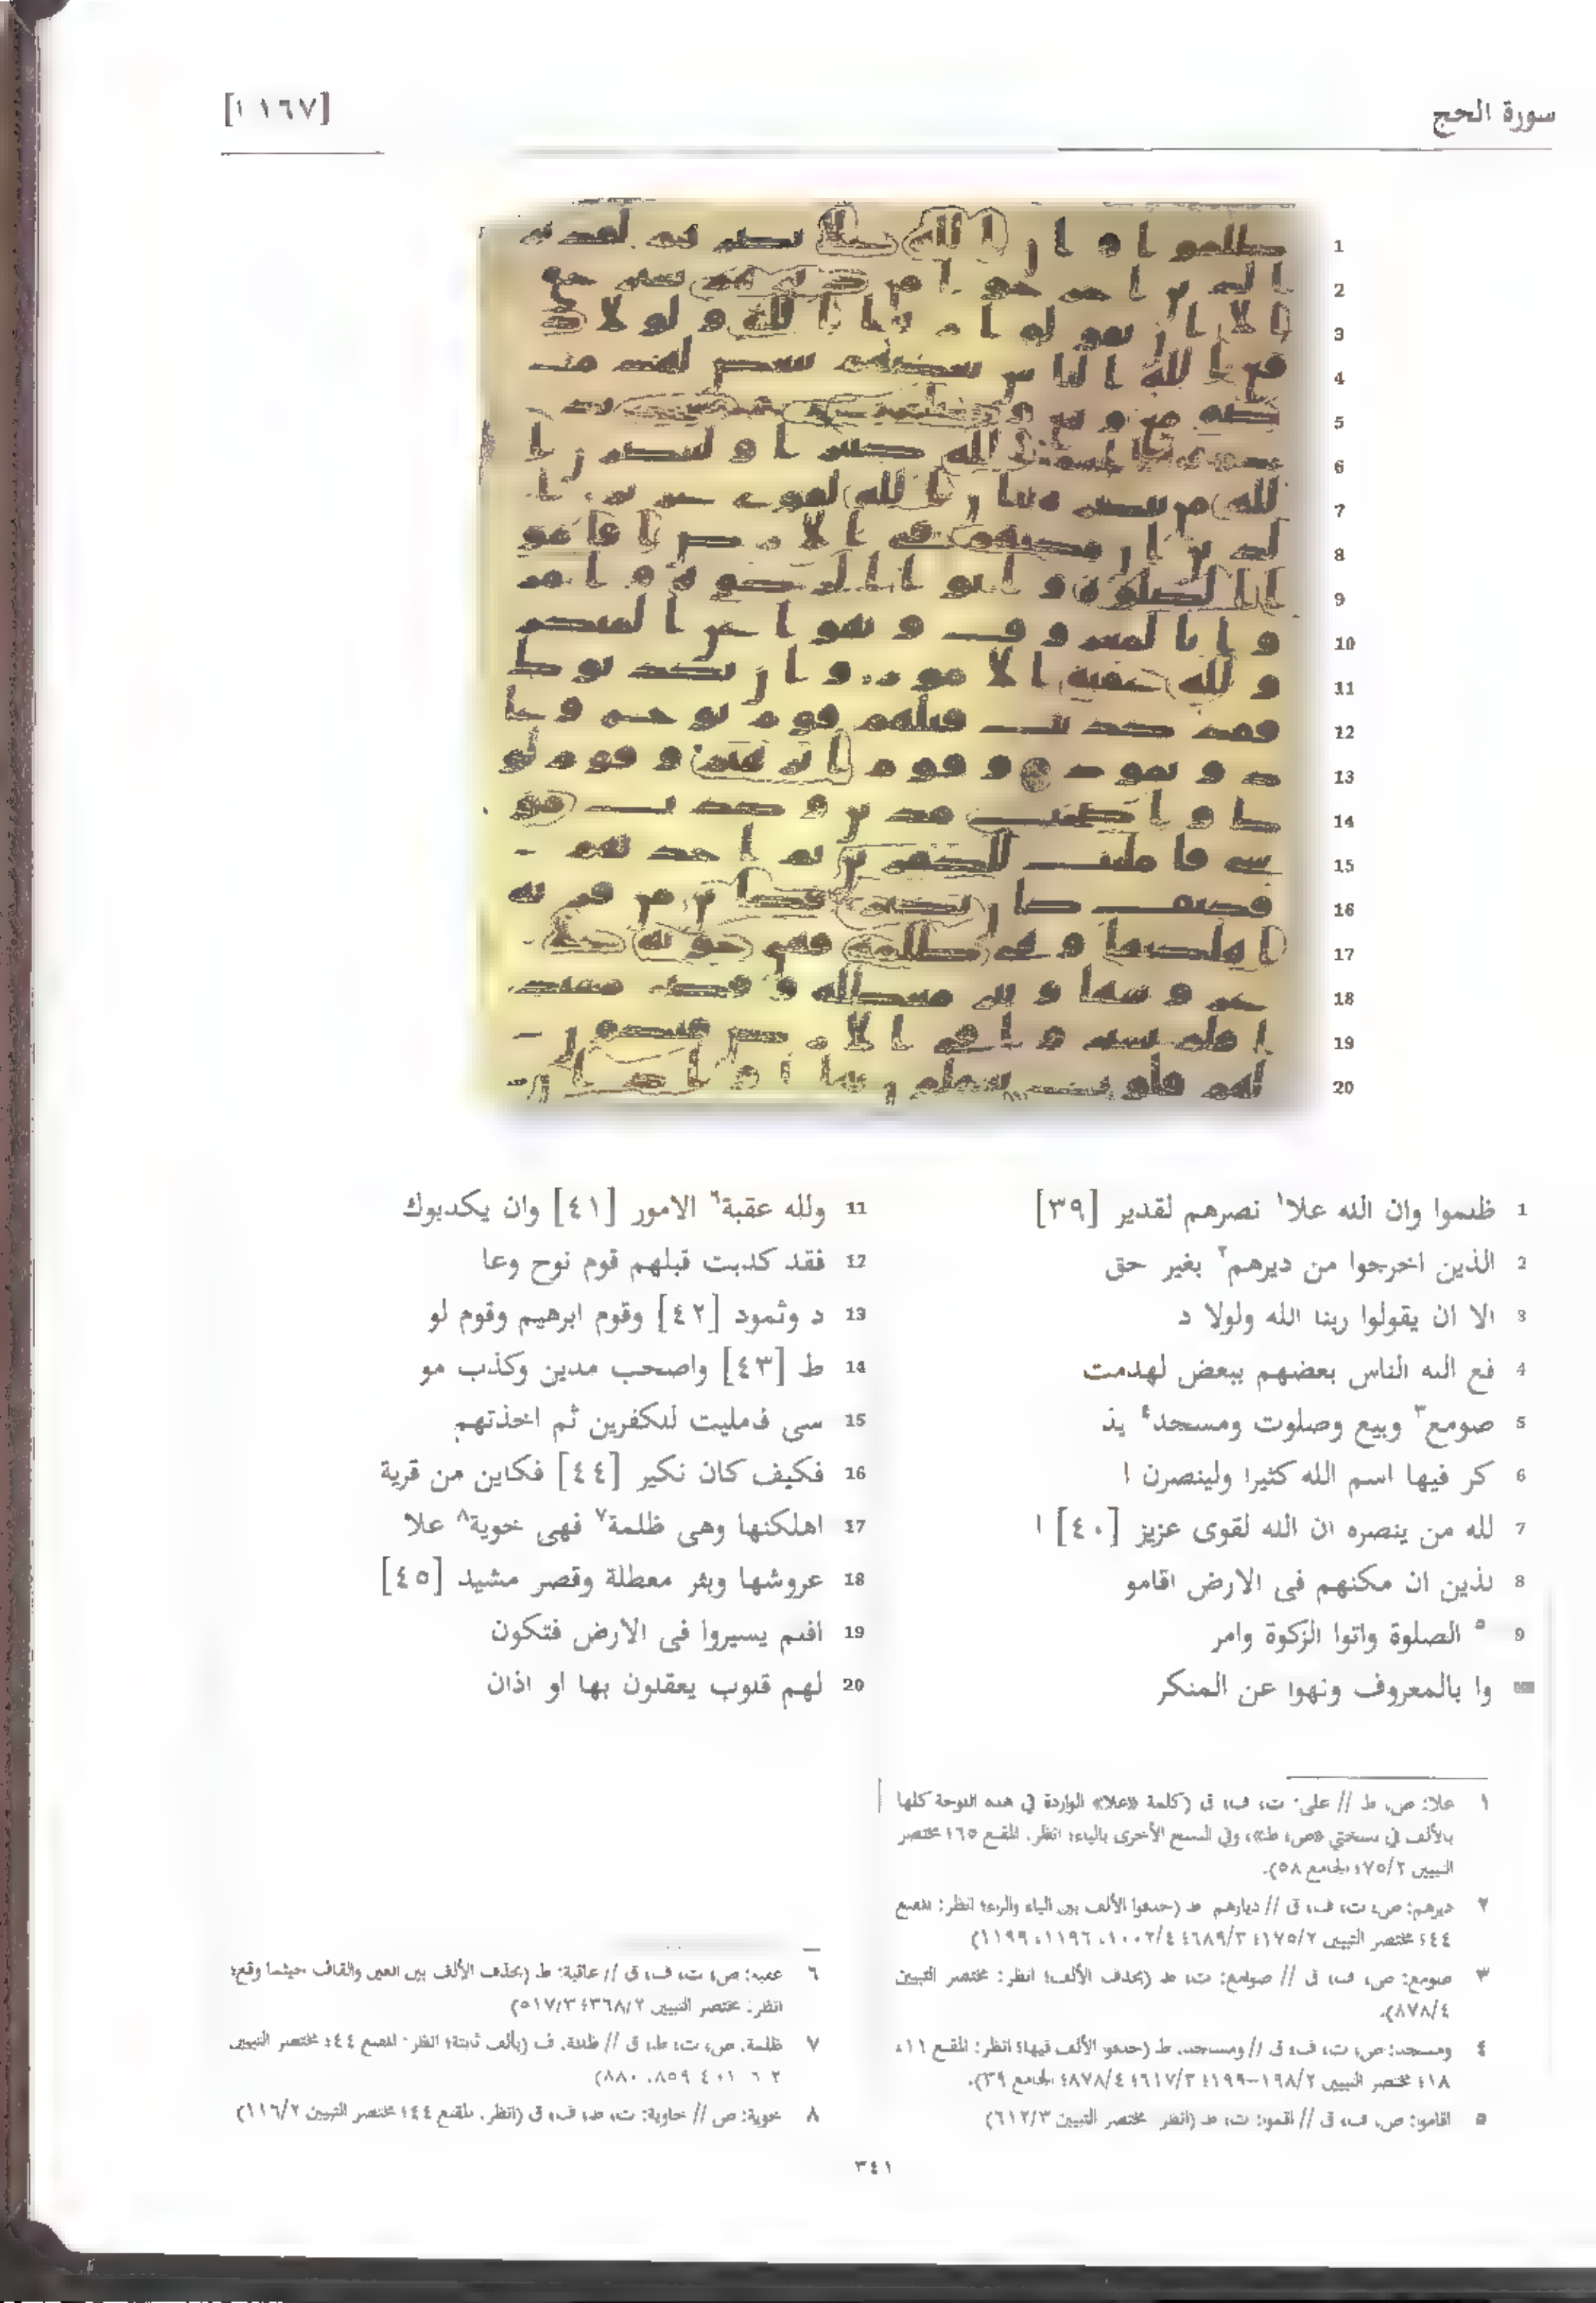 سورة الحج
[١٦٧ أ]
1 ظلموا وان الله علا١ نصرهم لقدير [٣٩]
2 الذين اخرجوا من ديرهم٢ بغير حق
3 الا ان يقولوا ربنا الله ولولا د
4 فع الله الناس بعضهم ببعض لهدمت
5 صومع٣ وبيع وصلوت ومسجد٤ يذ
6 كر فيها اسم الله كثيرا ولينصرن ا
7 لله من ينصره ان الله لقوى عزيز [٤٠] ا
8 لذين ان مكنهم فى الارض اقامو
9 ٥ الصلوة واتوا الزكوة وامر
وا بالمعروف ونهوا عن المنكر
11 ولله عقبة٦ الامور [٤١] وان يكذبوك
12 فقد كذبت قبلهم قوم نوح وعا
13 د وثمود [٤٢] وقوم ابرهيم وقوم لو
14 ط [٤٣] واصحب مدين وكذب مو
15 سى فامليت للكفرين ثم اخذتهم
16 فكيف كان نكير [٤٤] فكاين من قرية
17 اهلكنها وهى ظلمة٧ فهى خوية٨ علا
18 عروشها وبئر معطلة وقصر مشيد [٤٥]
19 افلم يسيروا فى الارض فتكون
20 لهم قلوب يعقلون بها او اذان
١ علا: ص، ط // على: ت، ف، ق (كلمة «علا» الواردة في هذه اللوحة كلها
بالألف في نسختي «ص، ط»، وفي النسخ الأخرى بالياء؛ انظر: المقنع ٦٥؛ مختصر
التبيين ٧٥/٢؛ الجامع ٥٨).
٢ ديرهم: ص، ت، ف، ق // ديارهم: ط (حذفوا الألف بين الياء والراء؛ انظر: المقنع
٤٤؛ مختصر التبيين ١٧٥/٢؛ ٦٨٩/٣؛ ١٠٠٢/٤، ١١٩٦، ١١٩٩)
٣ صومع: ص، ف، ق // صوامع: ت، ط (بحذف الألف؛ انظر: مختصر التبيين
٨٧٨/٤).
٤ ومسجد: ص، ت، ف، ق // ومساجد: ط (حذفو الألف فيها؛ انظر: المقنع ١١،
١٨؛ مختصر التبيين ١٩٨/٢–١٩٩؛ ٦١٧/٣؛ ٨٧٨/٤؛ الجامع ٣٩).
٥ اقامو: ص، ف، ق // اقمو: ت، ط (انظر: مختصر التبيين ٦١٢/٣)
٦ عقبة: ص، ت، ف، ق // عاقبة: ط (بحذف الألف بين العين والقاف حيثما وقع؛
انظر: مختصر التبيين ٣٦٨/٢؛ ٥١٧/٣)
٧ ظلمة: ص، ت، ط، ق // ظالمة: ف (بألف ثابتة؛ انظر: المقنع ٤٤؛ مختصر التبيين
٨٥٩، ٨٨٠)
٨ خوية: ص // خاوية: ت، ط، ف، ق (انظر: المقنع ٤٤؛ مختصر التبيين ١١٦/٢)
٣٤١